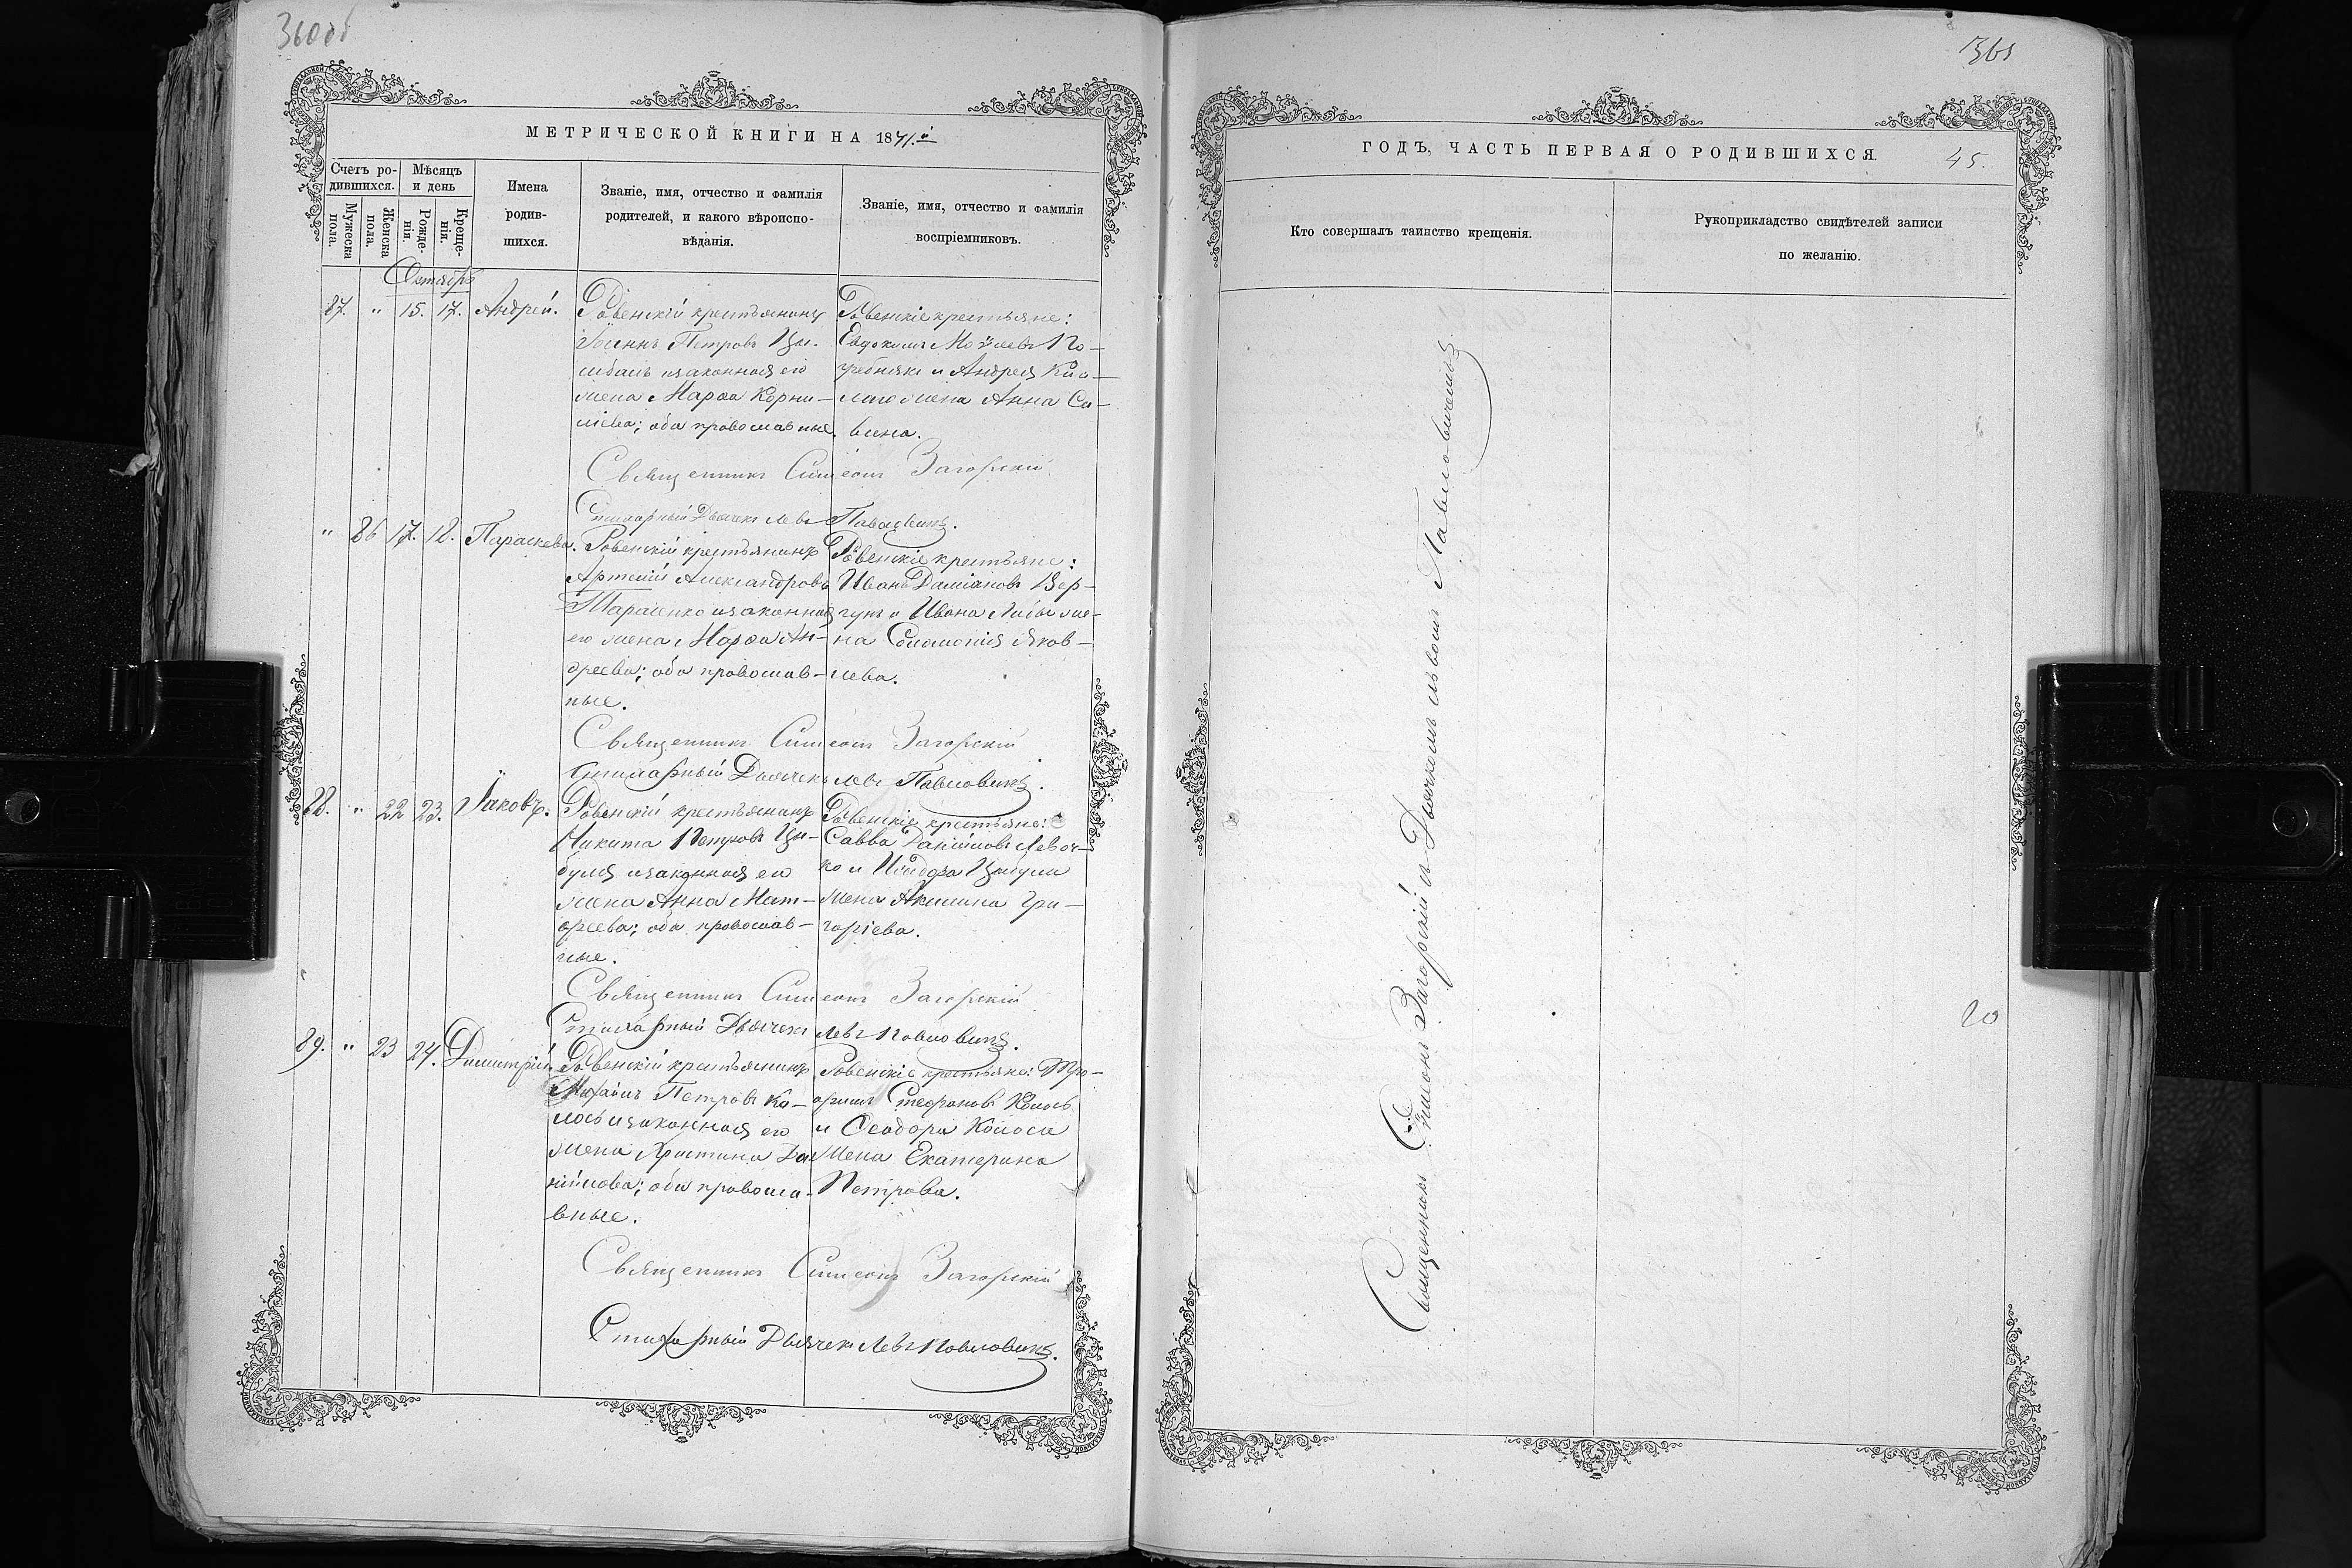 365
МЕТРИЧЕСКОЙ КНИГИ НА 1871.й
ГОДЪ, ЧАСТЬ ПЕРВАЯ О РОДИВШИХСЯ.
45.
Счетъ ро-
дившихся.
Мужеска
пола.
Женска
пола.
Мѣсяцъ
и день
Рожде-
нія.
Креще-
нія.
Имена
родив-
шихся.
Званіе, имя, отчество и фамилія
родителей, и какого вѣроиспо-
вѣданія.
Званіе, имя, отчество и фамилія
воспріемниковъ.
Кто совершалъ таинство крещенія.
Рукоприкладство свидѣтелей записи
по желанію.
Октябрь
87. " 15. 17. Андрей.
Ровенскій крестьянинъ
Іоаннъ Петровъ Цы-
и законная его
жена Марѳа Корни-
ліева; оба православные.
Ровенскіе крестьяне:
Евдокимъ По-
гребнякъ и Андрея
жена Анна Са-
вина.
Священникъ Симеонъ Загорскій
Стихарный Дьячекъ Левъ Павловичъ.
" 86 17. 18. Параскева.
Ровенскій крестьянинъ
Артемій Александровъ
Тарасенко и законная
его жена Марѳа Ан-
дреева; оба православ-
ные.
Ровенскіе крестьяне:
Иванъ Даміановъ Вер-
гунъ и Ивана Лабы же-
на Соломонія Яков-
лева.
Священникъ Симеонъ Загорскій
Стихарный Дьячекъ Левъ Павловичъ.
88. " 22 23. Іаковъ.
Ровенскій крестьянинъ
Никита Петровъ Цы-
буля и законная его
жена Анна Мат-
ѳеева; оба православ-
ные.
Ровенскіе крестьяне:
Савва Даніиловъ Левоч-
ко и Исидора Цыбули
жена Акилина Гри-
горіева.
Священникъ Симеонъ Загорскій
Стихарный Дьячекъ Левъ Павловичъ.
89. " 23 24. Димитрій.
Ровенскій крестьянинъ
Михаилъ Петровъ Ко-
лосъ и законная его
жена Христина Да-
ніилова; оба правосла-
вные.
Ровенскіе крестьяне: Тро-
фимъ Стефановъ Колосъ
и Ѳеодора Колоса
жена Екатерина
Петрова.
Священникъ Симеонъ Загорскій
Стихарный Дьячекъ Левъ Павловичъ.
Священникъ Симеонъ Загорскій съ Дьячкомъ Львомъ Павловичемъ
20